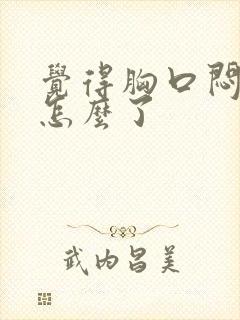 覺得胸口悶
怎麼了
武内昌美